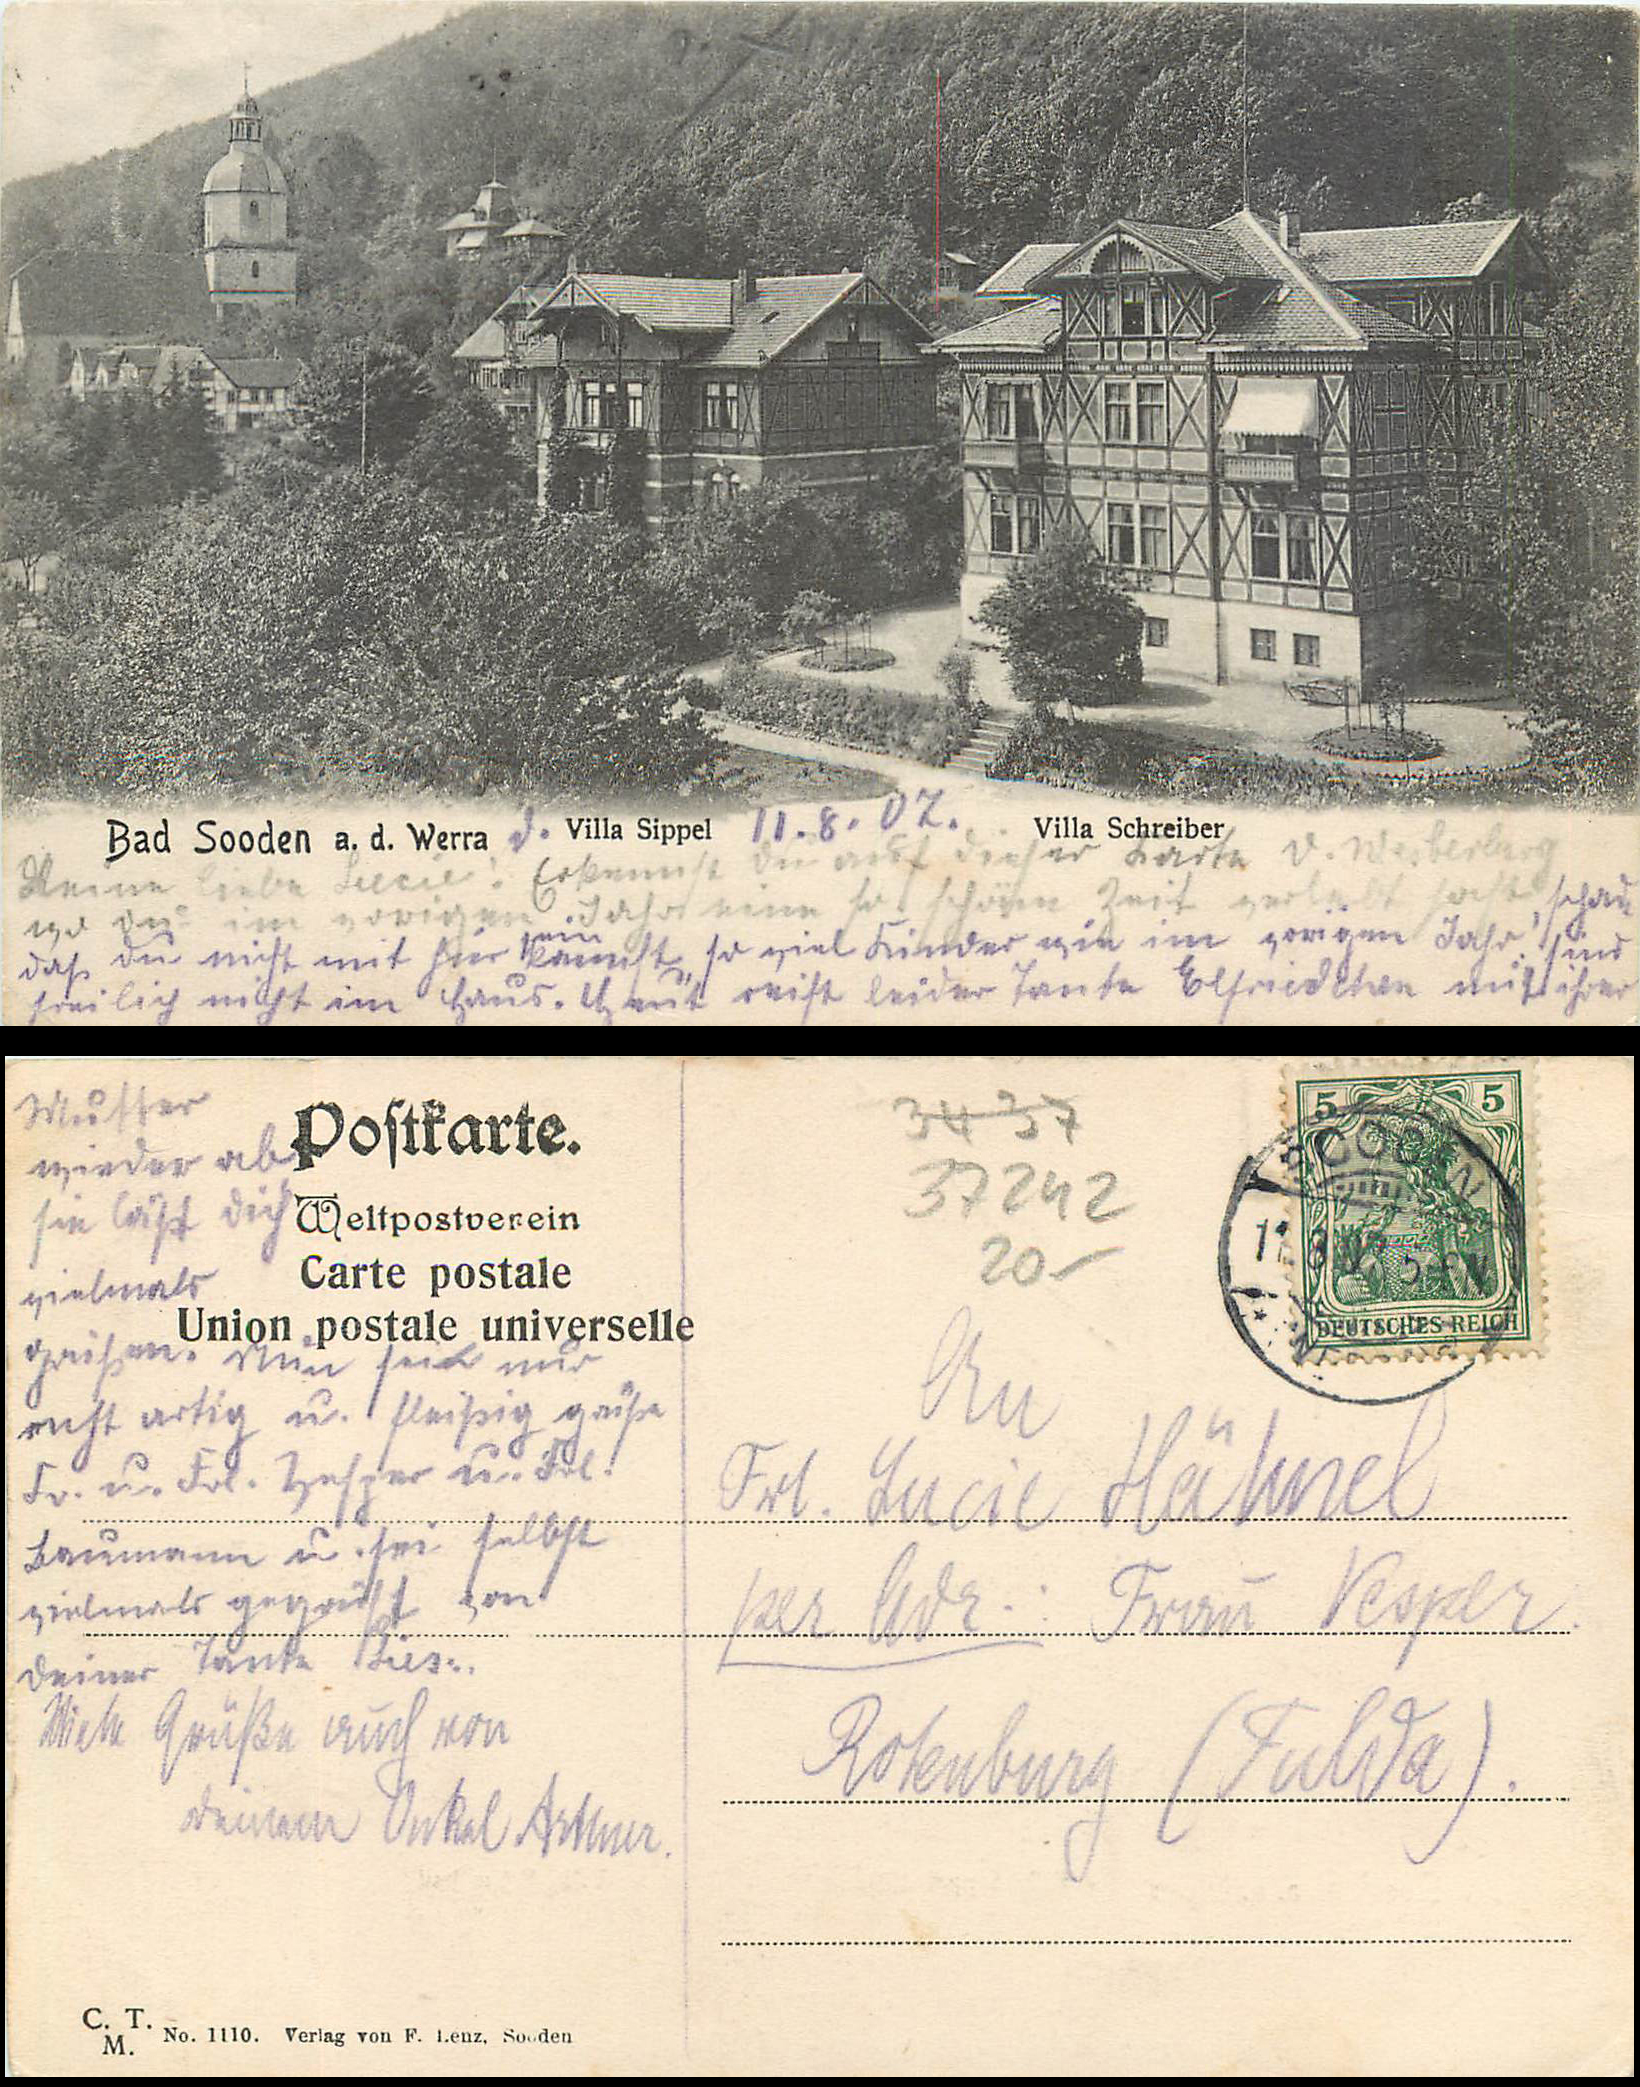 Bad Sooden a. d. Werra d. Villa Sippel 11.8.07. Villa Schreiber
Meine liebe Lucie! Erkennst du auf dieser Karte d. Westerberg
wo du im vorigen Jahr eine so schöne Zeit verlebt hast, schade
daß du nicht mit hier sein kannst, so viel Kinder wie im vorigen Jahr sind
freilich nicht im Haus. Heut reist leider Tante Elfriedchen mit ihrer
Mutter
wieder ab
sie läßt dich
vielmals
grüßen. Nun sei nur
recht artig u. fleißig grüße
Fr. u. Frl. Vesper u. Frl.
Baumann u. sei selbst
vielmals gegrüßt von
deiner Tante Lies..
Viele Grüße auch von
deinem Onkel Arthur.
Postkarte.
Weltpostverein
Carte postale
Union postale universelle
34 37
37242
20-
5 5
DEUTSCHES REICH
SOODEN
An
Frl. Lucie Hähnel
per Adr.: Frau Vesper.
Rotenburg (Fulda).
C. T. M. No. 1110. Verlag von F. Lenz, Sooden